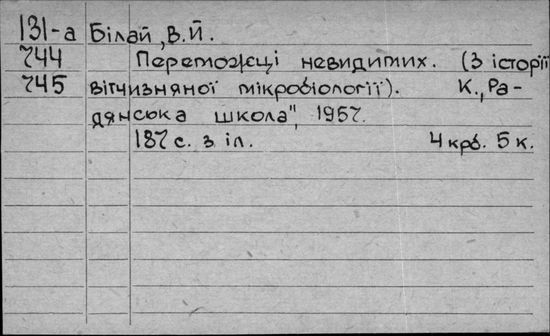 131-а Білай, В.Й.
744 Переможці невидимих. (З історії
745 вітчизняної мікробіології). К., „Ра-
дянська школа", 1957.
187 с. з іл. 4 крб. 5 к.